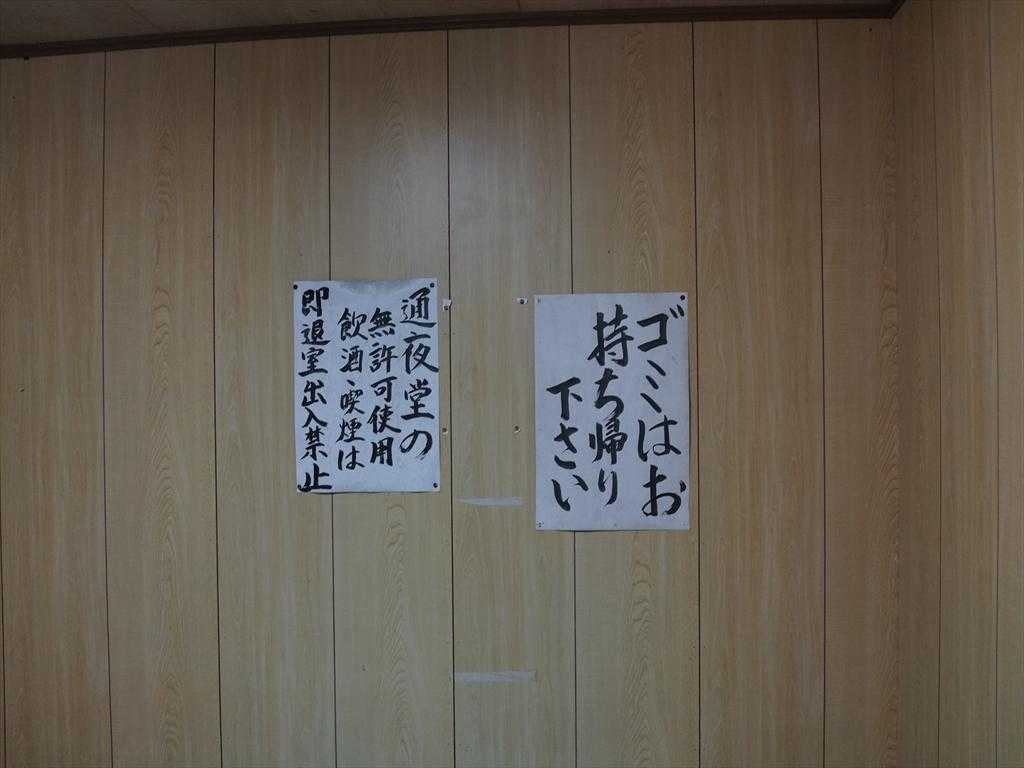 ゴミはお
持ち帰り
下さい
通夜堂の
無許可使用
飲酒、喫煙は
即退室出入禁止